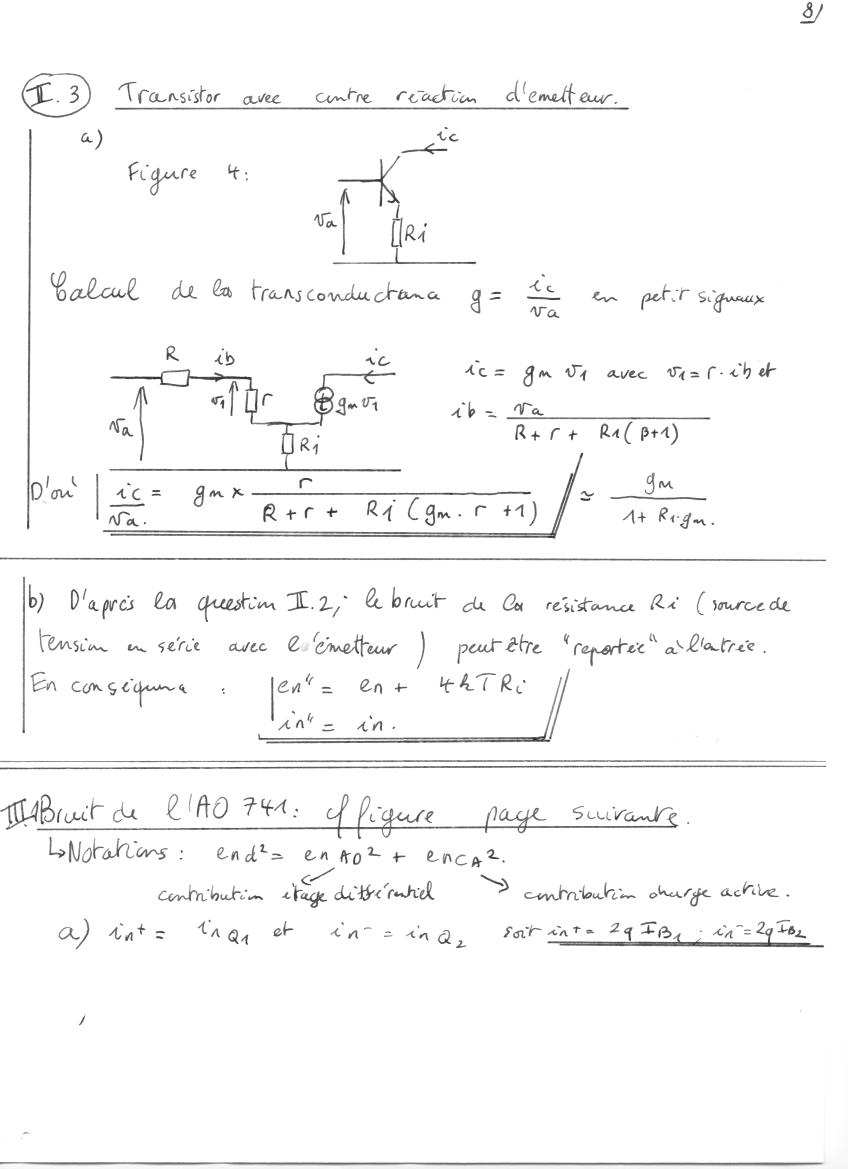 8/
II.3 Transistor avec contre réaction d'emetteur.
a)
ic
Figure 4:
va
Ri
Calcul de la transconductana g = ic/va en petit signaux
R ib ic
v1 r gm v1
va
Ri
ic = gm v1 avec v1 = r. ib et
ib = va / (R + r + R1 (β+1))
D'où ic/va. = gm × r / (R + r + Ri (gm. r +1)) ≃ gm / (1 + R1.gm.)
b) D'après la question II.2, le bruit de la résistance Ri (source de
tension en série avec l'émetteur) peut être "reportée" à l'atrée.
En conséquna : en" = en + 4kTRi
in" = in.
III.1 Bruit de l'AO 741: cf figure page suivante.
↳Notations: end² = en AO² + en CA².
contribution étage différentiel contribution charge active.
a) in+ = in Q1 et in- = in Q2 soit in+ = 2q IB1 ; in- = 2q IB2